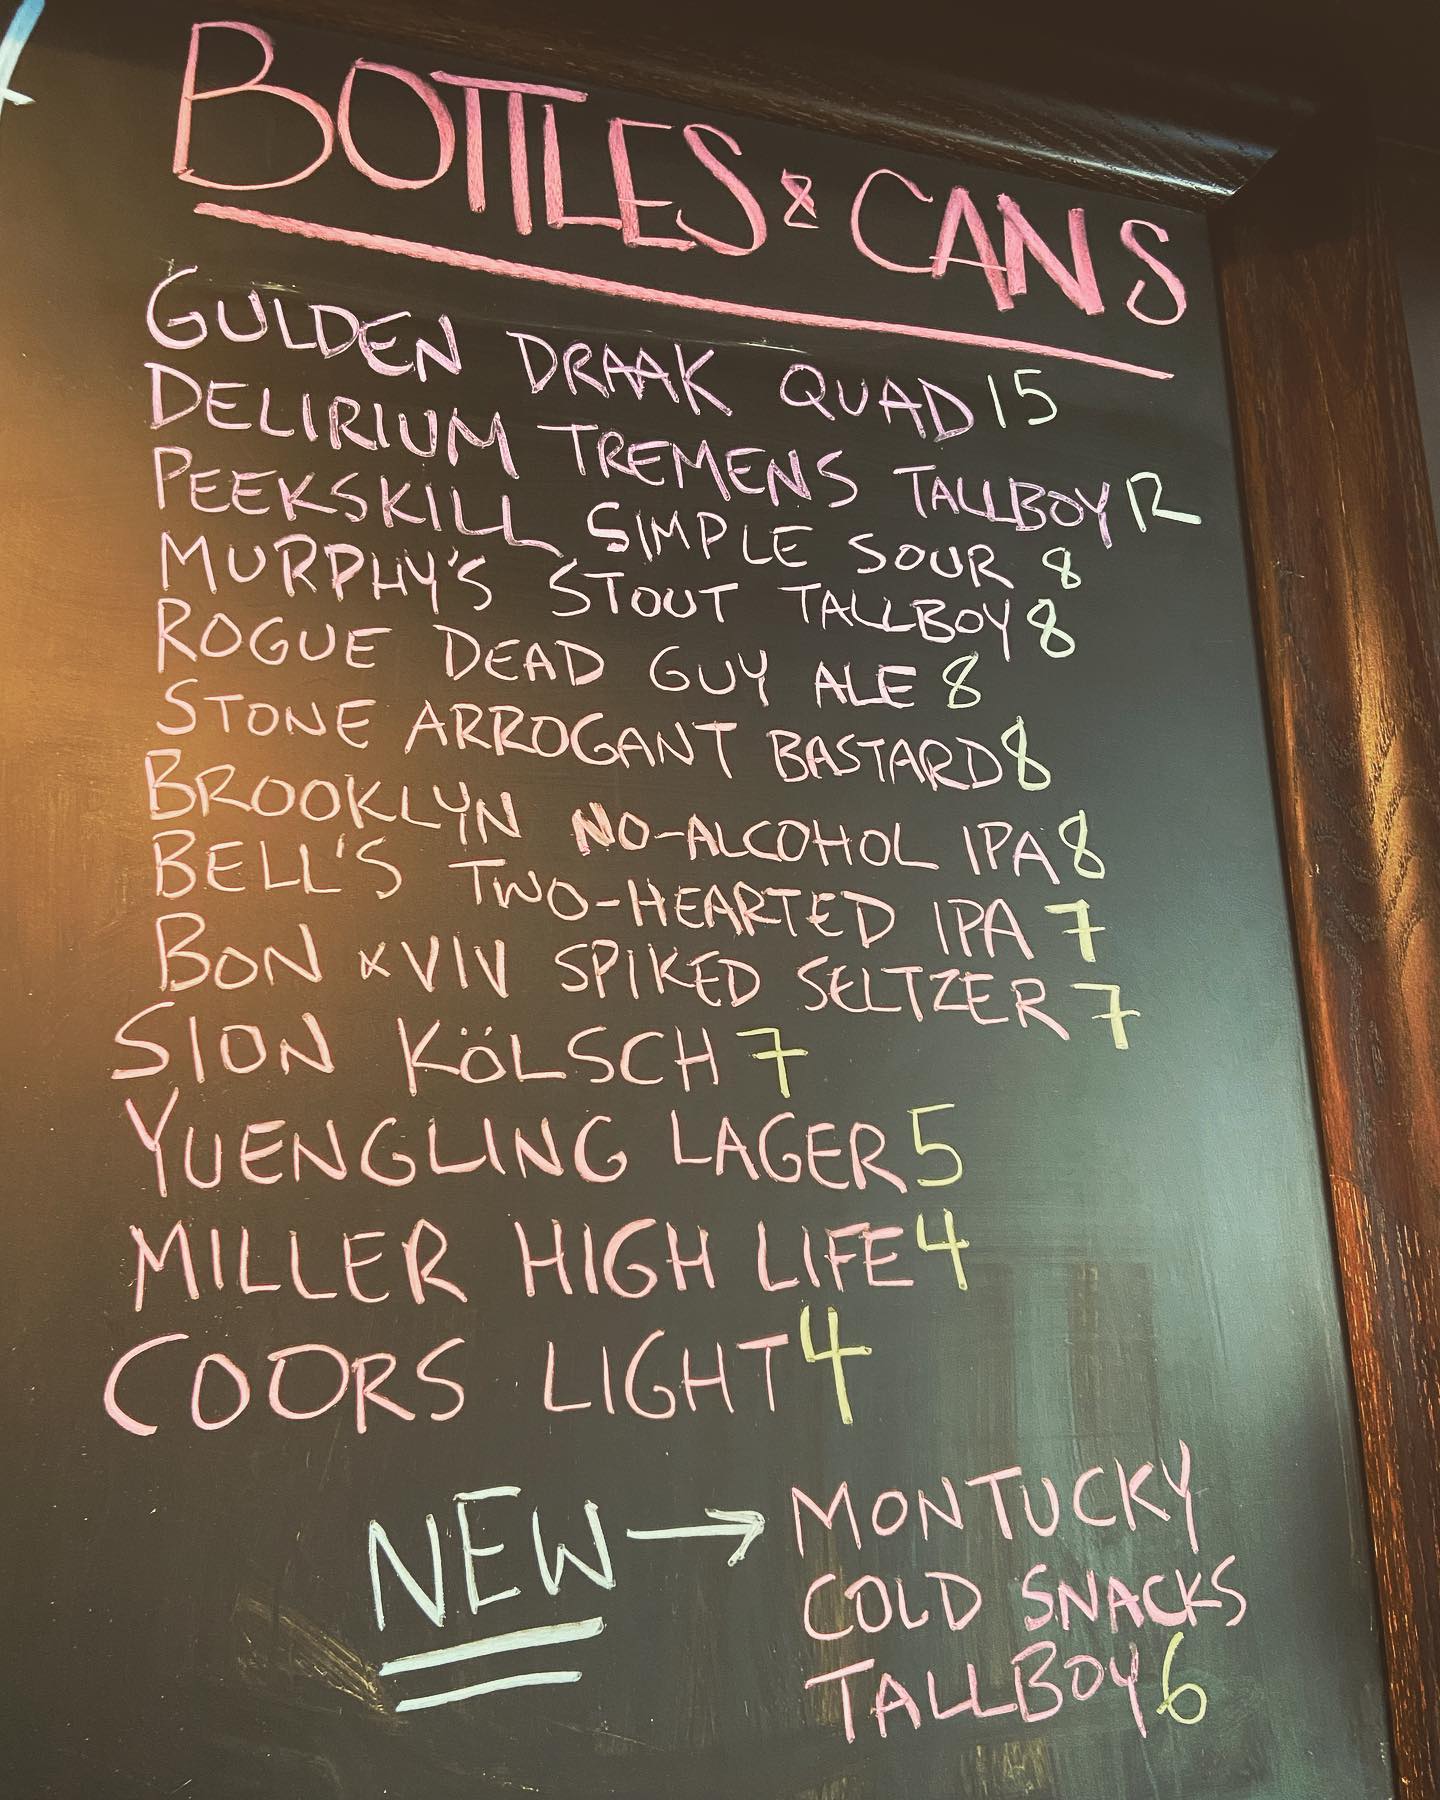 BOTTLES & CANS
GULDEN DRAAK QUAD 15
DELIRIUM TREMENS TALLBOY 12
PEEKSKILL SIMPLE SOUR 8
MURPHY'S STOUT TALLBOY 8
ROGUE DEAD GUY ALE 8
STONE ARROGANT BASTARD 8
BROOKLYN NO-ALCOHOL IPA 8
BELL'S TWO-HEARTED IPA 7
BON & VIV SPIKED SELTZER 7
SION KÖLSCH 7
YUENGLING LAGER 5
MILLER HIGH LIFE 4
COORS LIGHT 4
NEW → MONTUCKY
COLD SNACKS
TALLBOY 6